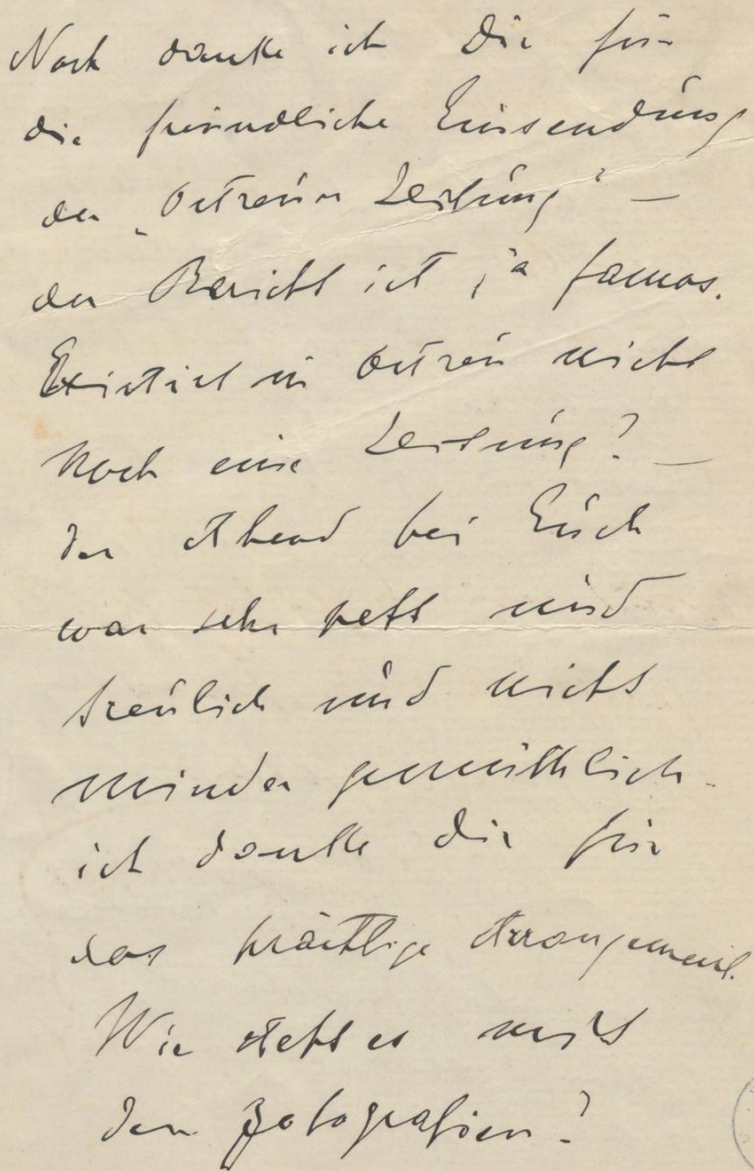 Noch danke ich Dir für
die freundliche Einsendung
der „Ostrauer Zeitung" —
der Bericht ist ja famos.
Existiert in Ostrau nicht
noch eine Zeitung? —
Der Abend bei Euch
war sehr nett und
treulich und nicht
minder gemüthlich.
ich danke Dir für
das prächtige Arrangement.
Wie steht es mit
den Fotografien?